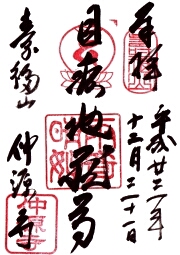 奉拝
平成廿二年
十二月二十一日
目疾地蔵尊
壽福山 仲源寺
仲源寺